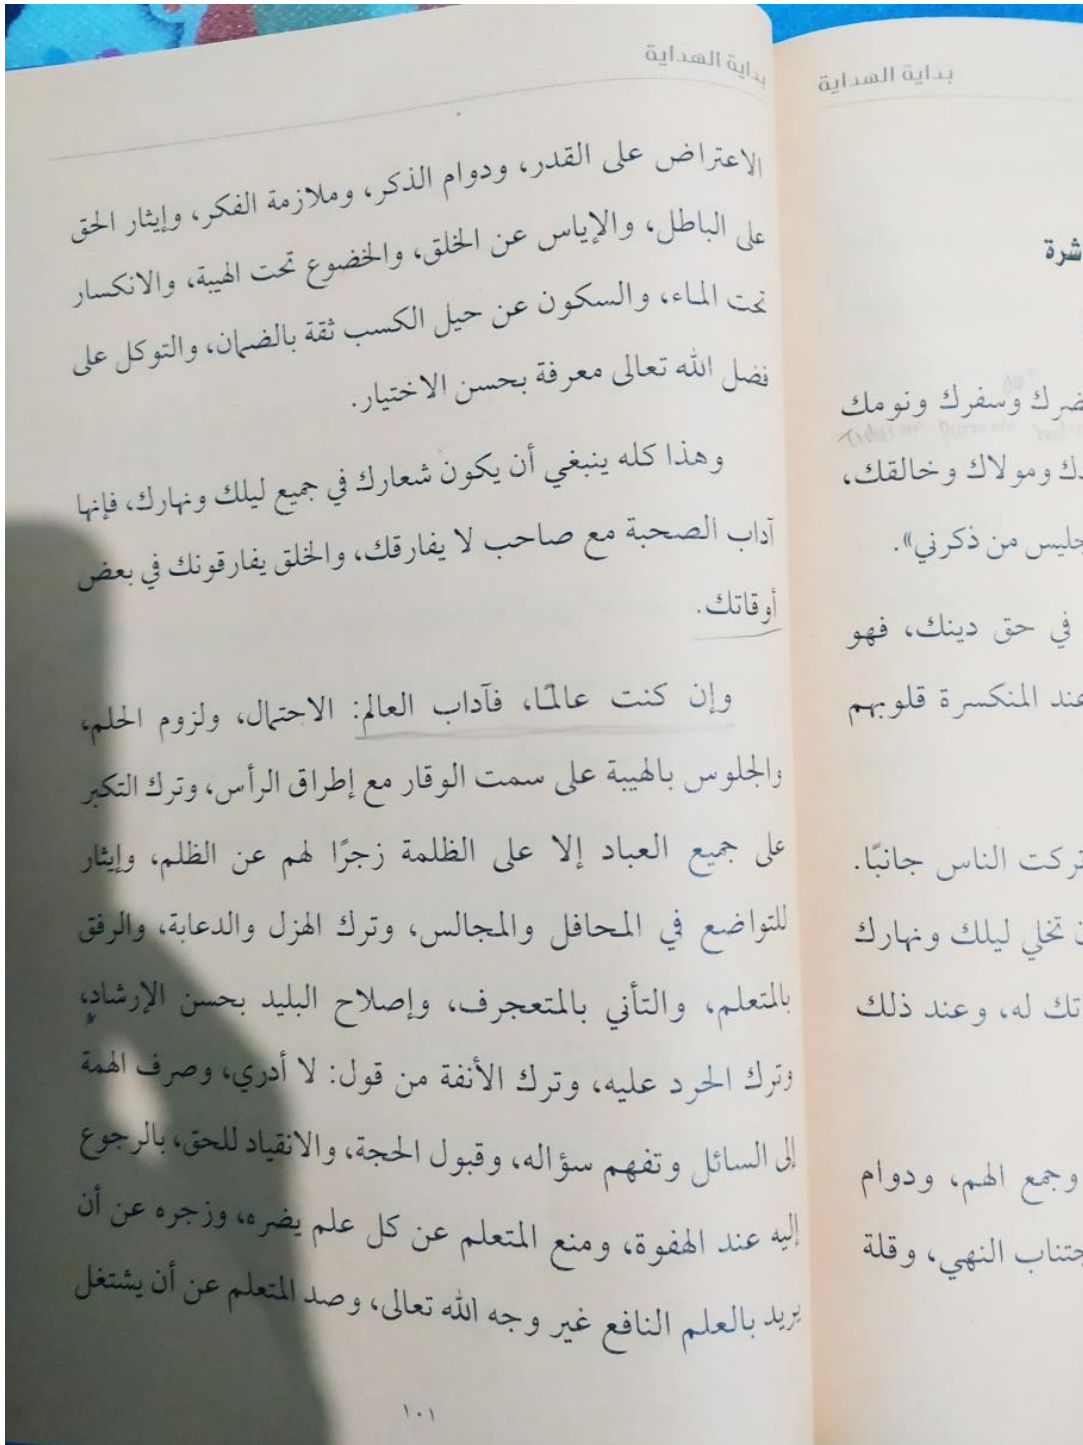 بداية الهداية
الاعتراض على القدر، ودوام الذكر، وملازمة الفكر، وإيثار الحق
على الباطل، والإياس عن الخلق، والخضوع تحت الهيبة، والانكسار
تحت الماء، والسكون عن حيل الكسب ثقة بالضمان، والتوكل على
فضل الله تعالى معرفة بحسن الاختيار.
وهذا كله ينبغي أن يكون شعارك في جميع ليلك ونهارك، فإنها
آداب الصحبة مع صاحب لا يفارقك، والخلق يفارقونك في بعض
أوقاتك.
وإن كنت عالمًا، فآداب العالم: الاحتمال، ولزوم الحلم،
والجلوس بالهيبة على سمت الوقار مع إطراق الرأس، وترك التكبر
على جميع العباد إلا على الظلمة زجرًا لهم عن الظلم، وإيثار
للتواضع في المحافل والمجالس، وترك الهزل والدعابة، والرفق
بالمتعلم، والتأني بالمتعجرف، وإصلاح البليد بحسن الإرشاد،
وترك الحرد عليه، وترك الأنفة من قول: لا أدري، وصرف الهمة
إلى السائل وتفهم سؤاله، وقبول الحجة، والانقياد للحق، بالرجوع
إليه عند الهفوة، ومنع المتعلم عن كل علم يضره، وزجره عن أن
يريد بالعلم النافع غير وجه الله تعالى، وصد المتعلم عن أن يشتغل
١٠١
بداية الهداية
وسفرك ونومك
ومولاك وخالقك،
من ذكرني».
في حق دينك، فهو
المنكسرة قلوبهم
الناس جانبًا.
تخلي ليلك ونهارك
له، وعند ذلك
وجمع الهم، ودوام
النهي، وقلة